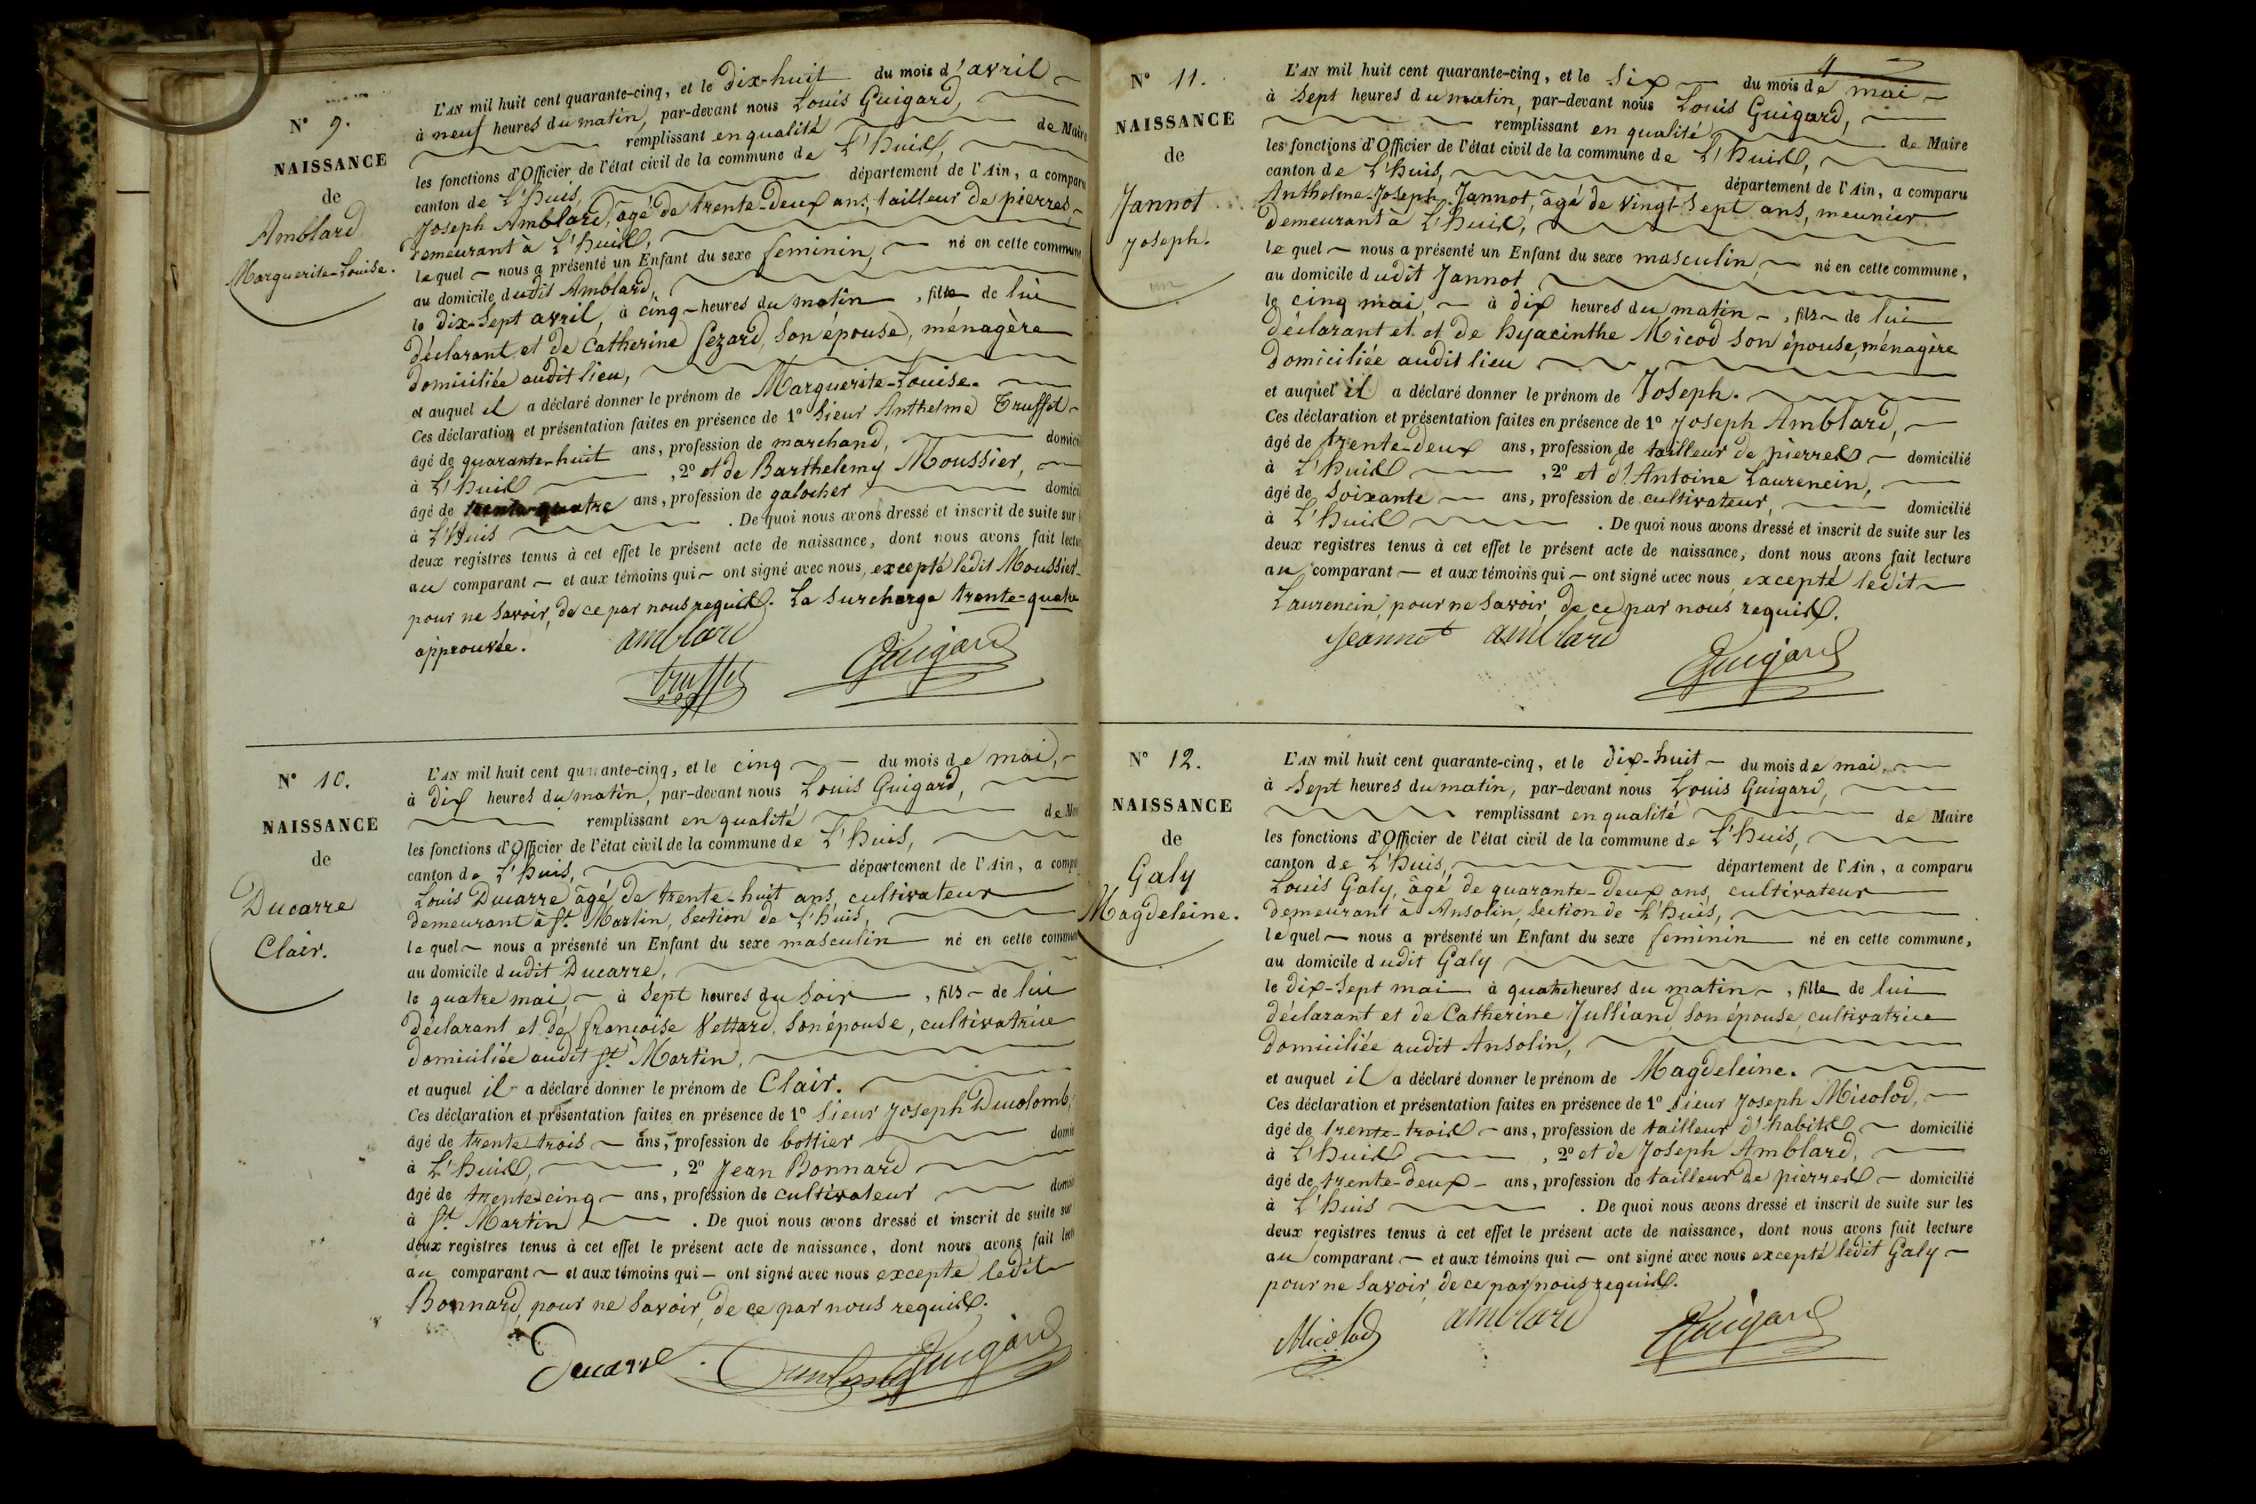 N° 9.
NAISSANCE
de
Amblard
Marguerite-Louise.
L'AN mil huit cent quarante-cinq, et le dix-huit du mois d'avril
à neuf heures du matin, par-devant nous Louis Guigard,
remplissant en qualité de Maire
les fonctions d'Officier de l'état civil de la commune de L'huis,
canton de L'huis, département de l'Ain, a comparu
Joseph Amblard, âgé de trente-deux ans, tailleur de pierres
demeurant à L'huis,
lequel nous a présenté un Enfant du sexe feminin, né en cette commune
au domicile dudit Amblard,
le dix-sept avril, à cinq heures du matin, fille de lui
déclarant et de Catherine Cezard, son épouse, ménagère
domiciliée audit lieu,
et auquel il a déclaré donner le prénom de Marguerite-Louise.
Ces déclaration et présentation faites en présence de 1° Sieur Anthelme Truffet
âgé de quarante-huit ans, profession de marchand, domici
à L'huis, 2° et de Barthelemy Moussier,
âgé de trente-quatre ans, profession de galocher domicil
à L'huis. De quoi nous avons dressé et inscrit de suite sur
deux registres tenus à cet effet le présent acte de naissance, dont nous avons fait lectu
au comparant et aux témoins qui ont signé avec nous, excepté ledit Moussier
pour ne savoir, de ce par nous requis. La surcharge trente-quatre
approuvée.
amblard
truffet
Guigard
N° 10.
NAISSANCE
de
Ducarre
Clair.
L'AN mil huit cent quarante-cinq, et le cinq du mois de mai,
à dix heures du matin, par-devant nous Louis Guigard,
remplissant en qualité de Mai
les fonctions d'Officier de l'état civil de la commune de L'huis,
canton de L'huis, département de l'Ain, a compa
Louis Ducarre âgé de trente-huit ans, cultivateur
demeurant à St. Martin, section de L'huis,
lequel nous a présenté un Enfant du sexe masculin né en cette commun
au domicile dudit Ducarre,
le quatre mai à sept heures du soir, fils de lui
déclarant et de françoise Vettard, son épouse, cultivatrice
domiciliée audit St. Martin,
et auquel il a déclaré donner le prénom de Clair.
Ces déclaration et présentation faites en présence de 1° Sieur Joseph Ducolomb,
âgé de trente-trois ans, profession de bottier domi
à L'huis, 2° Jean Bonnard
âgé de trente-cinq ans, profession de cultivateur domi
à St. Martin. De quoi nous avons dressé et inscrit de suite sur
deux registres tenus à cet effet le présent acte de naissance, dont nous avons fait lect
au comparant et aux témoins qui ont signé avec nous excepté ledit
Bonnard, pour ne savoir, de ce par nous requis.
Ducarre Guigard
4
N° 11.
NAISSANCE
de
Jannot
Joseph.
L'AN mil huit cent quarante-cinq, et le six du mois de mai
à sept heures du matin, par-devant nous Louis Guigard,
remplissant en qualité de Maire
les fonctions d'Officier de l'état civil de la commune de L'huis,
canton de L'huis, département de l'Ain, a comparu
Anthelme-Joseph Jannot, âgé de vingt-sept ans, meunier
demeurant à L'huis,
lequel nous a présenté un Enfant du sexe masculin né en cette commune,
au domicile dudit Jannot
le cinq mai, à dix heures du matin, fils de lui
déclarant et et de hyacinthe Micod son épouse, ménagère
domiciliée audit lieu
et auquel il a déclaré donner le prénom de Joseph.
Ces déclaration et présentation faites en présence de 1° Joseph Amblard,
âgé de trente-deux ans, profession de tailleur de pierres domicilié
à L'huis, 2° et d'Antoine Laurencin,
âgé de soixante ans, profession de cultivateur, domicilié
à L'huis. De quoi nous avons dressé et inscrit de suite sur les
deux registres tenus à cet effet le présent acte de naissance, dont nous avons fait lecture
au comparant et aux témoins qui ont signé avec nous excepté ledit
Laurencin, pour ne savoir, de ce par nous requis.
Jeannot amblard
Guigard
N° 12.
NAISSANCE
de
Galy
Magdeleine.
L'AN mil huit cent quarante-cinq, et le dix-huit du mois de mai,
à sept heures du matin, par-devant nous Louis Guigard,
remplissant en qualité de Maire
les fonctions d'Officier de l'état civil de la commune de L'huis,
canton de L'huis, département de l'Ain, a comparu
Louis Galy, âgé de quarante-deux ans, cultivateur
demeurant à Ansolin, section de L'huis,
lequel nous a présenté un Enfant du sexe feminin né en cette commune,
au domicile dudit Galy
le dix-sept mai à quatre heures du matin, fille de lui
déclarant et de Catherine Julliand, son épouse, cultivatrice
domiciliée audit Ansolin,
et auquel il a déclaré donner le prénom de Magdeleine.
Ces déclaration et présentation faites en présence de 1° sieur Joseph Micolod,
âgé de trente-trois ans, profession de tailleur d'habits domicilié
à L'huis, 2° et de Joseph Amblard,
âgé de trente-deux ans, profession de tailleur de pierres domicilié
à L'huis. De quoi nous avons dressé et inscrit de suite sur les
deux registres tenus à cet effet le présent acte de naissance, dont nous avons fait lecture
au comparant et aux témoins qui ont signé avec nous excepté ledit Galy
pour ne savoir, de ce par nous requis.
Micolod amblard Guigard